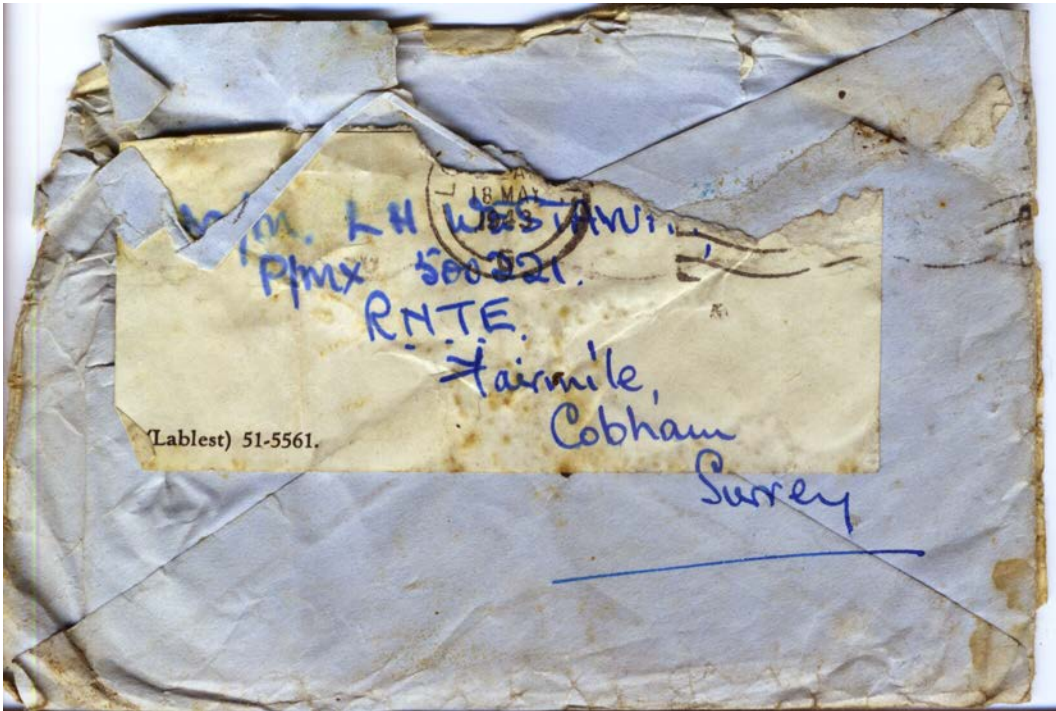 18 MAY
1943
LH
P/MX 500221.
R.N.T.E.
Fairmile,
Cobham
Surrey
(Lablest) 51-5561.